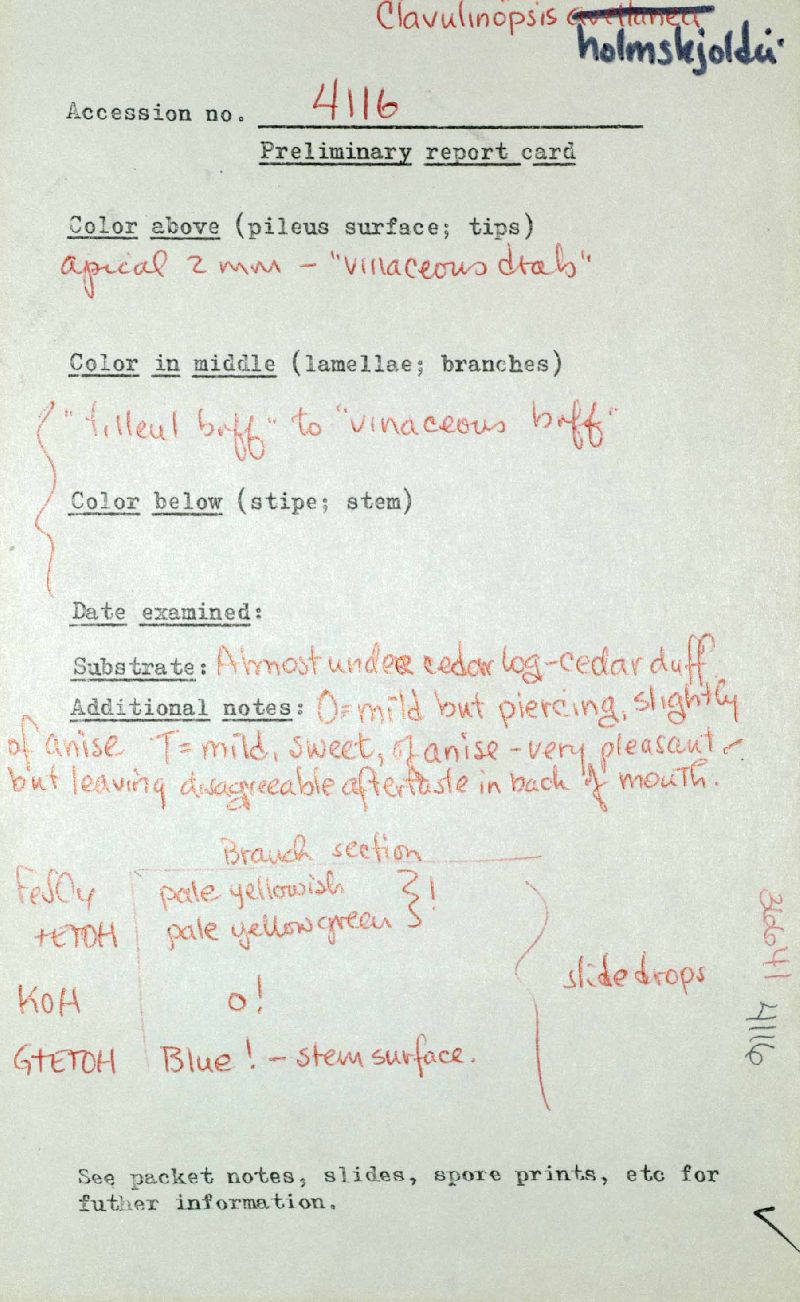 Clavulinopsis avellanea
holmskjoldii
Accession no. 4116
Preliminary report card
Color above (pileus surface; tips)
apical 2 mm - "vinaceous drab"
Color in middle (lamellae; branches)
"tilleul buff" to "vinaceous buff"
Color below (stipe; stem)
Date examined:
Substrate: Almost under cedar log-cedar duff.
Additional notes: O=mild but piercing, slightly
of anise T=mild, sweet, of anise - very pleasant -
but leaving disagreeable aftertaste in back of mouth.
Branch section
FeSO4 pale yellowish } !
+ETOH pale yellowgreen
KOH o!
slide drops
G+ETOH Blue! - stem surface.
36641 4116
See packet notes, slides, spore prints, etc for
futher information.